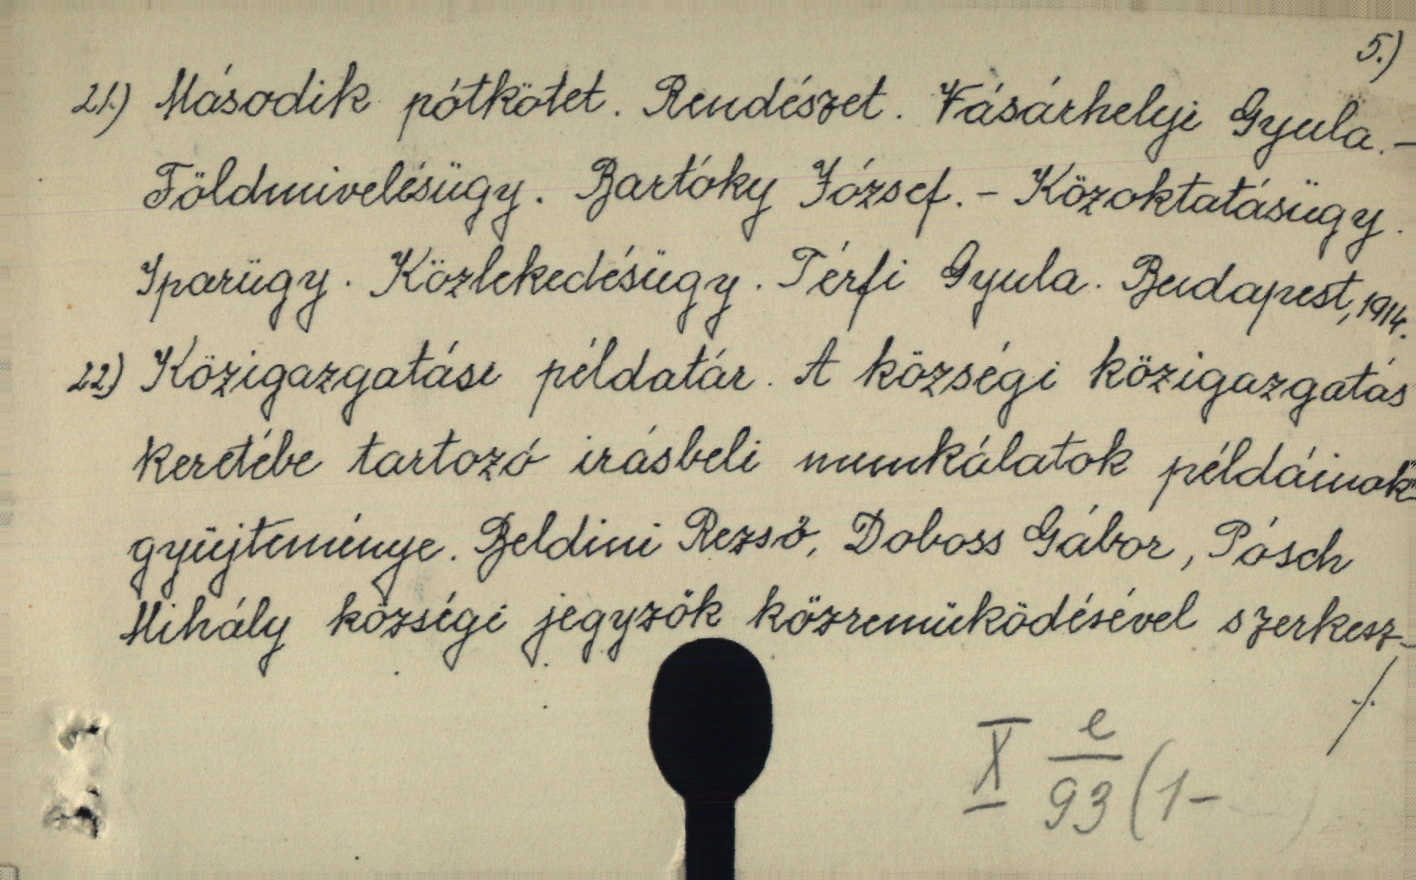 5.)
21.) Második pótkötet. Rendészet. Vásárhelyi Gyula. -
Földmivelésügy. Bartóky József. - Közoktatásügy.
Iparügy. Közlekedésügy. Térfi Gyula. Budapest, 1914.
22) Közigazgatási példatár. A községi közigazgatás
keretébe tartozó irásbeli munkálatok példáinak
gyüjteménye. Beldini Rezső, Doboss Gábor, Pósch
Mihály községi jegyzők közremüködésével szerkesz-
./.
X e/93 (1-    )